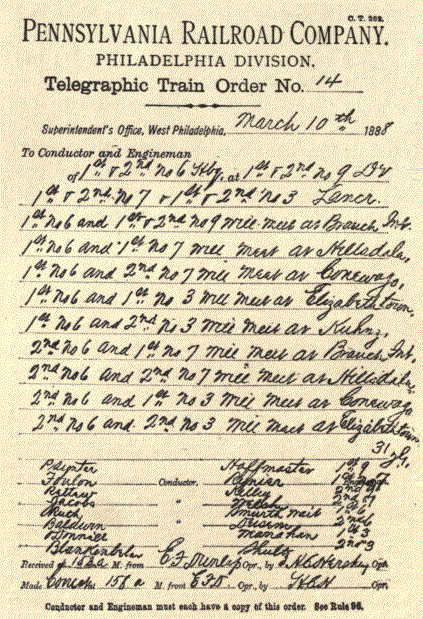 C. T. 262.
PENNSYLVANIA RAILROAD COMPANY.
PHILADELPHIA DIVISION.
Telegraphic Train Order No. 14
Superintendent's Office, West Philadelphia, March 10th 1888
To Conductor and Engineman
of 1st & 2nd No 6 Hbg. at 1st & 2nd No 9 Dv
1st & 2nd No 7 & 1st & 2nd No 3 Lancr.
1st No 6 and 1st & 2nd No 9 will meet at Branch Int.
1st No 6 and 1st No 7 will meet at Hillsdale,
1st No 6 and 2nd No 7 will meet at Conewago,
1st No 6 and 1st No 3 will meet at Elizabethtown,
1st No 6 and 2nd No 3 will meet at Kuhns,
2nd No 6 and 1st No 7 will meet at Branch Int.
2nd No 6 and 2nd No 7 will meet at Hillsdale,
2nd No 6 and 1st No 3 will meet at Conewago
2nd No 6 and 2nd No 3 will meet at Elizabethtown
31
Paynter Hoffmaster 1st 9
Foulon Conductor.
Kelley
Jacobs "
"
Baldwin "
Monahan
Shultz 2nd 3
Received at 158 a M. from E. F. Dunlap Opr., by Opr.
Made Complete 158 a M. from E F D. Opr., by Opr.
Conductor and Engineman must each have a copy of this order. See Rule 96.